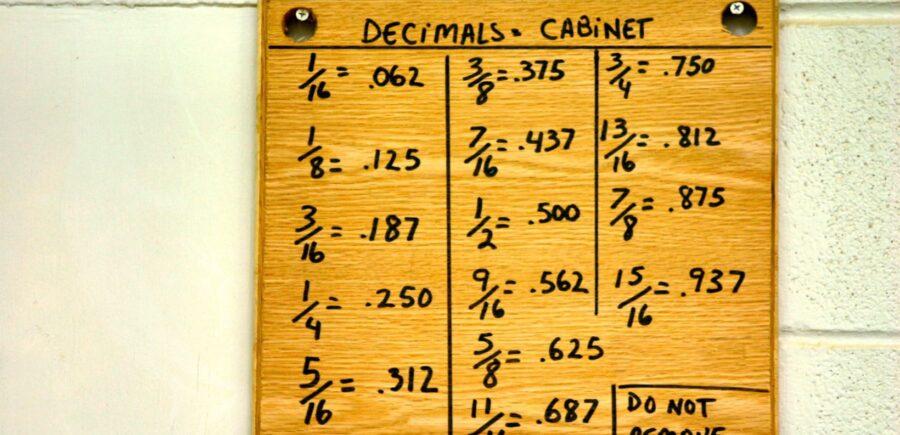 DECIMALS = CABINET
1/16 = .062
1/8 = .125
3/16 = .187
1/4 = .250
5/16 = .312
3/8 = .375
7/16 = .437
1/2 = .500
9/16 = .562
5/8 = .625
11/ = .687
3/4 = .750
13/16 = .812
7/8 = .875
15/16 = .937
DO NOT
REMOVE